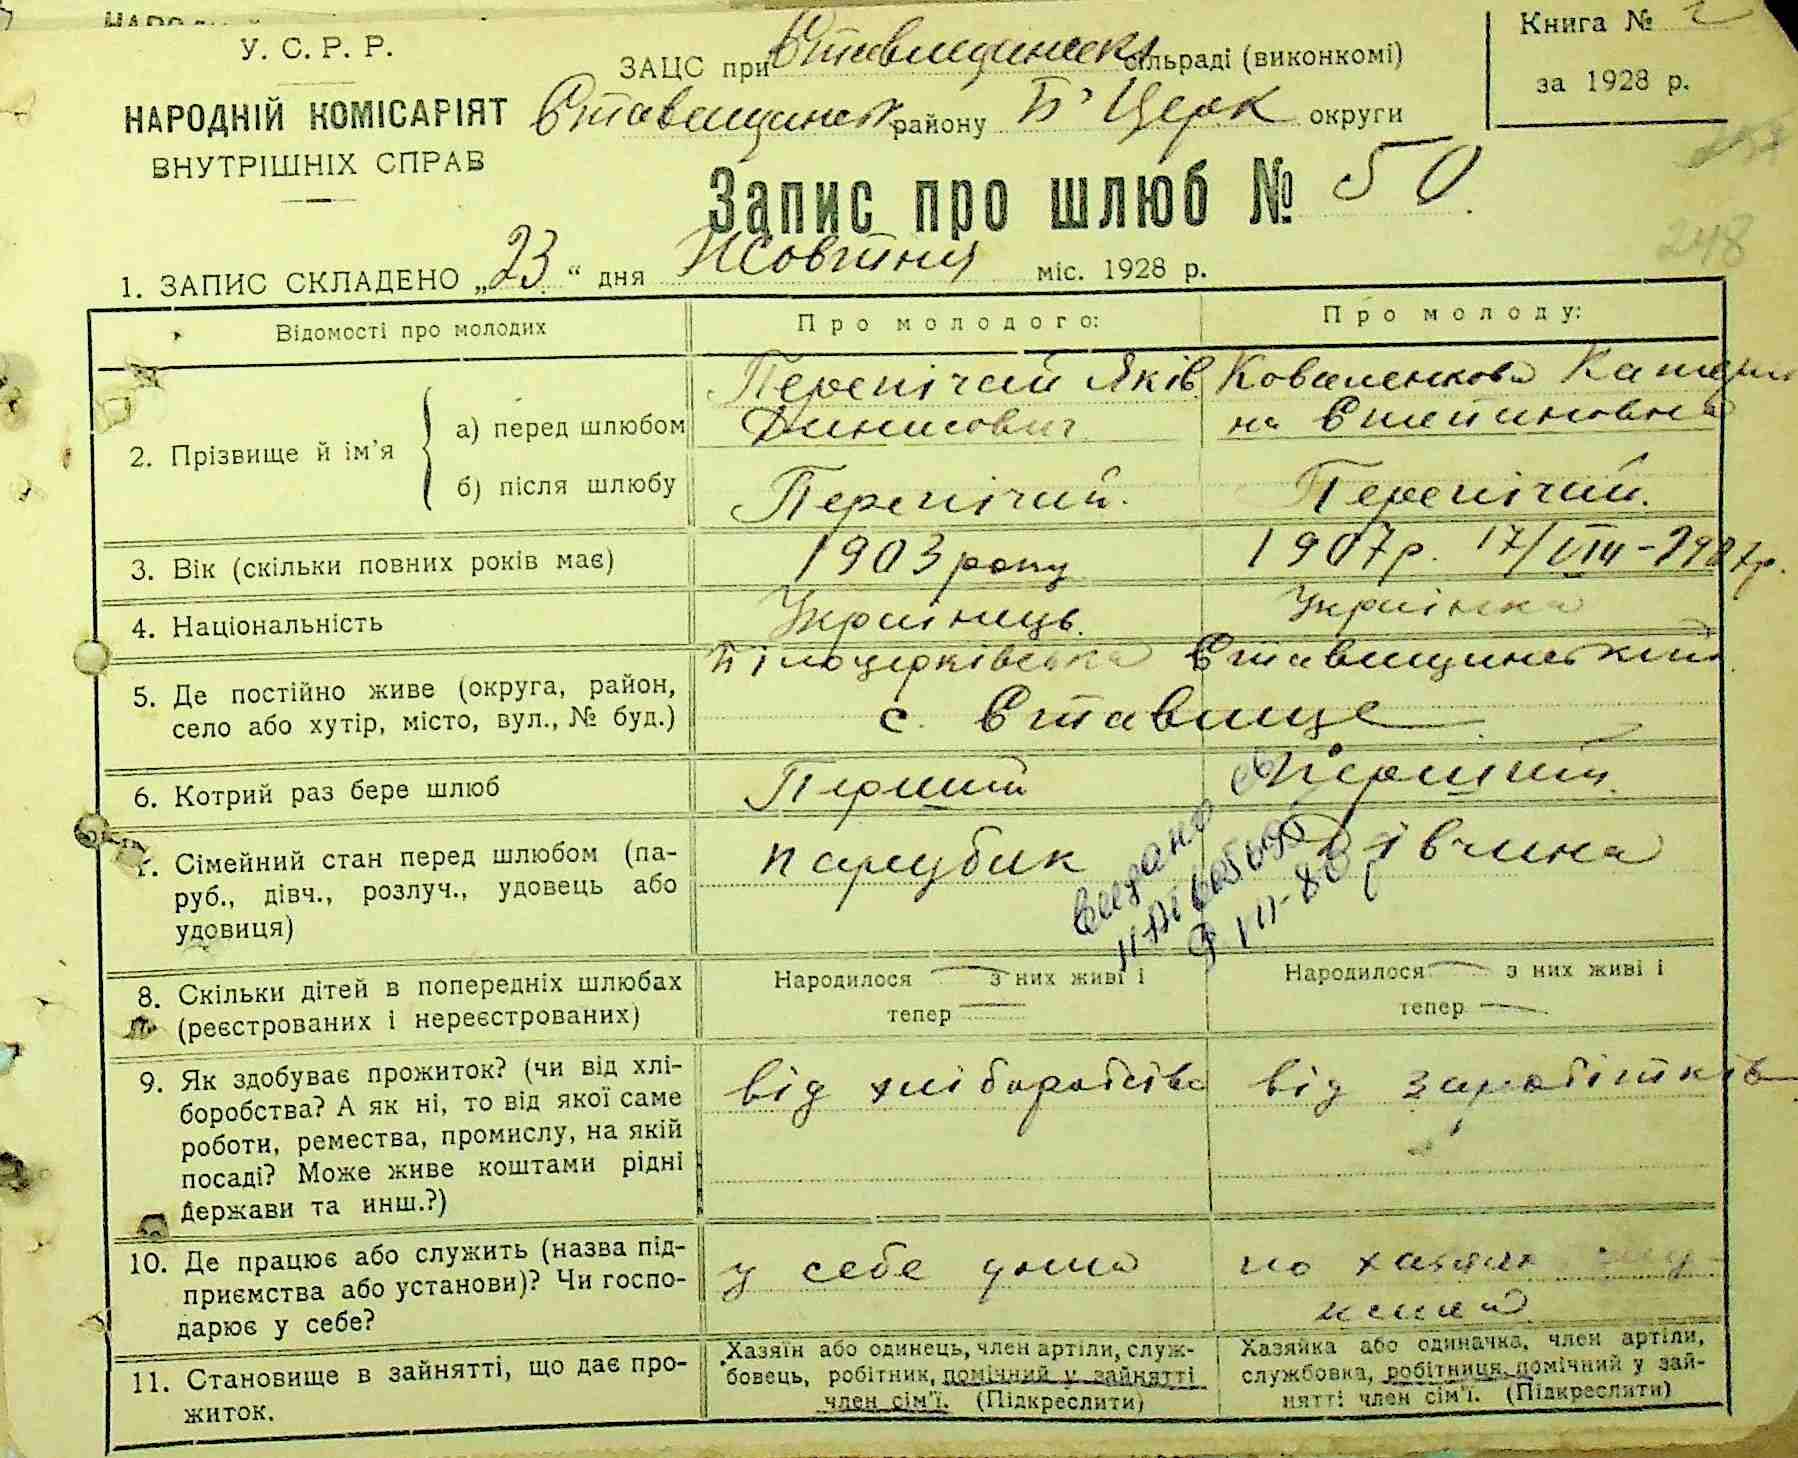 У. С. Р. Р.
НАРОДНІЙ КОМІСАРІЯТ
ВНУТРІШНІХ СПРАВ
ЗАЦС при Ставищанськ сільраді (виконкомі)
Ставищанськ району Б Церк округи
Книга №
за 1928 р.
Запис про шлюб № 50
248
1. ЗАПИС СКЛАДЕНО „23“ дня Жовтня міс. 1928 р.
Відомості про молодих
Про молодого:
Про молоду:
2. Прізвище й ім'я
а) перед шлюбом
Перепічай Яків
Динисович
Коваленкова Катери
на Степановна
б) після шлюбу
Перепічай.
Перепічай.
3. Вік (скільки повних років має)
1903 року
1907р. 17/VIII-1907р.
4. Національність
Українець.
Українка
5. Де постійно живе (округа, район,
село або хутір, місто, вул., № буд.)
Білоцерківська Ставищанський
с. Ставище
6. Котрий раз бере шлюб
Перший
Перший
7. Сімейний стан перед шлюбом (па-
руб., дівч., розлуч., удовець або
удовиця)
парубик
Дівчина
8. Скільки дітей в попередніх шлюбах
(реєстрованих і нереєстрованих)
Народилося — з них живі і
тепер —
Народилося — з них живі і
тепер —
9. Як здобуває прожиток? (чи від хлі-
боробства? А як ні, то від якої саме
роботи, ремества, промислу, на якій
посаді? Може живе коштами рідні
Держави та инш.?)
від хліборобства
від заробітків
10. Де працює або служить (назва під-
приємства або установи)? Чи госпо-
дарює у себе?
у себе дома
по
11. Становище в зайнятті, що дає про-
житок.
Хазяїн або одинець, член артіли, служ-
бовець, робітник, помічний у зайнятті
член сім'ї. (Підкреслити)
Хазяйка або одиначка, член артіли,
службовка, робітниця, помічний у зай-
нятті член сім'ї. (Підкреслити)